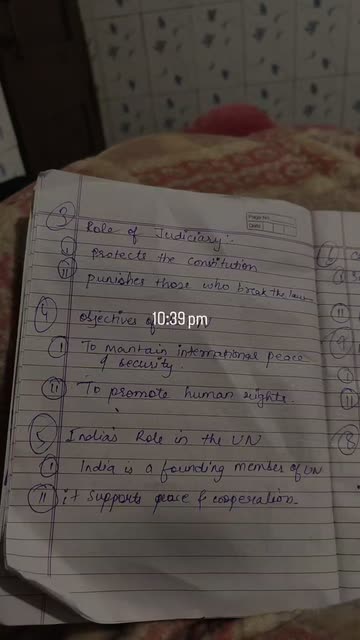 Page No.
Date
③ Role of Judiciary:-
① protects the constitution
⑪ punishes those who break the laws
④ objectives of
10:39 pm
① To mantain international peace
& security
⑪ To promote human rights
⑤ India's Role in the UN
① India is a founding member of UN
⑪ it supports peace & cooperation
⑥
①
⑪
⑦
①
⑪
⑧